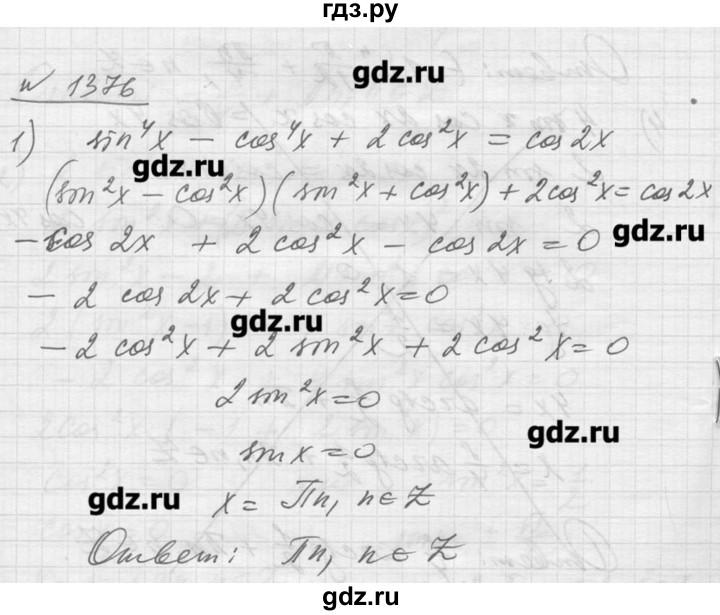 гдз.ру
№ 1376
гдз.ru
1) sin⁴x − cos⁴x + 2cos²x = cos2x
гдз.ru
(sin²x − cos²x)(sin²x + cos²x) + 2cos²x = cos2x
− cos 2x + 2cos²x − cos 2x = 0
гдз.ru
− 2 cos 2x + 2cos²x = 0
гдз.ru
− 2 cos²x + 2 sin²x + 2 cos²x = 0
2 sin²x = 0
гдз.ru
sinx = 0
гдз.ru
x = Πn, n∈Z
Ответ: Πn, n∈Z
гдз.ру